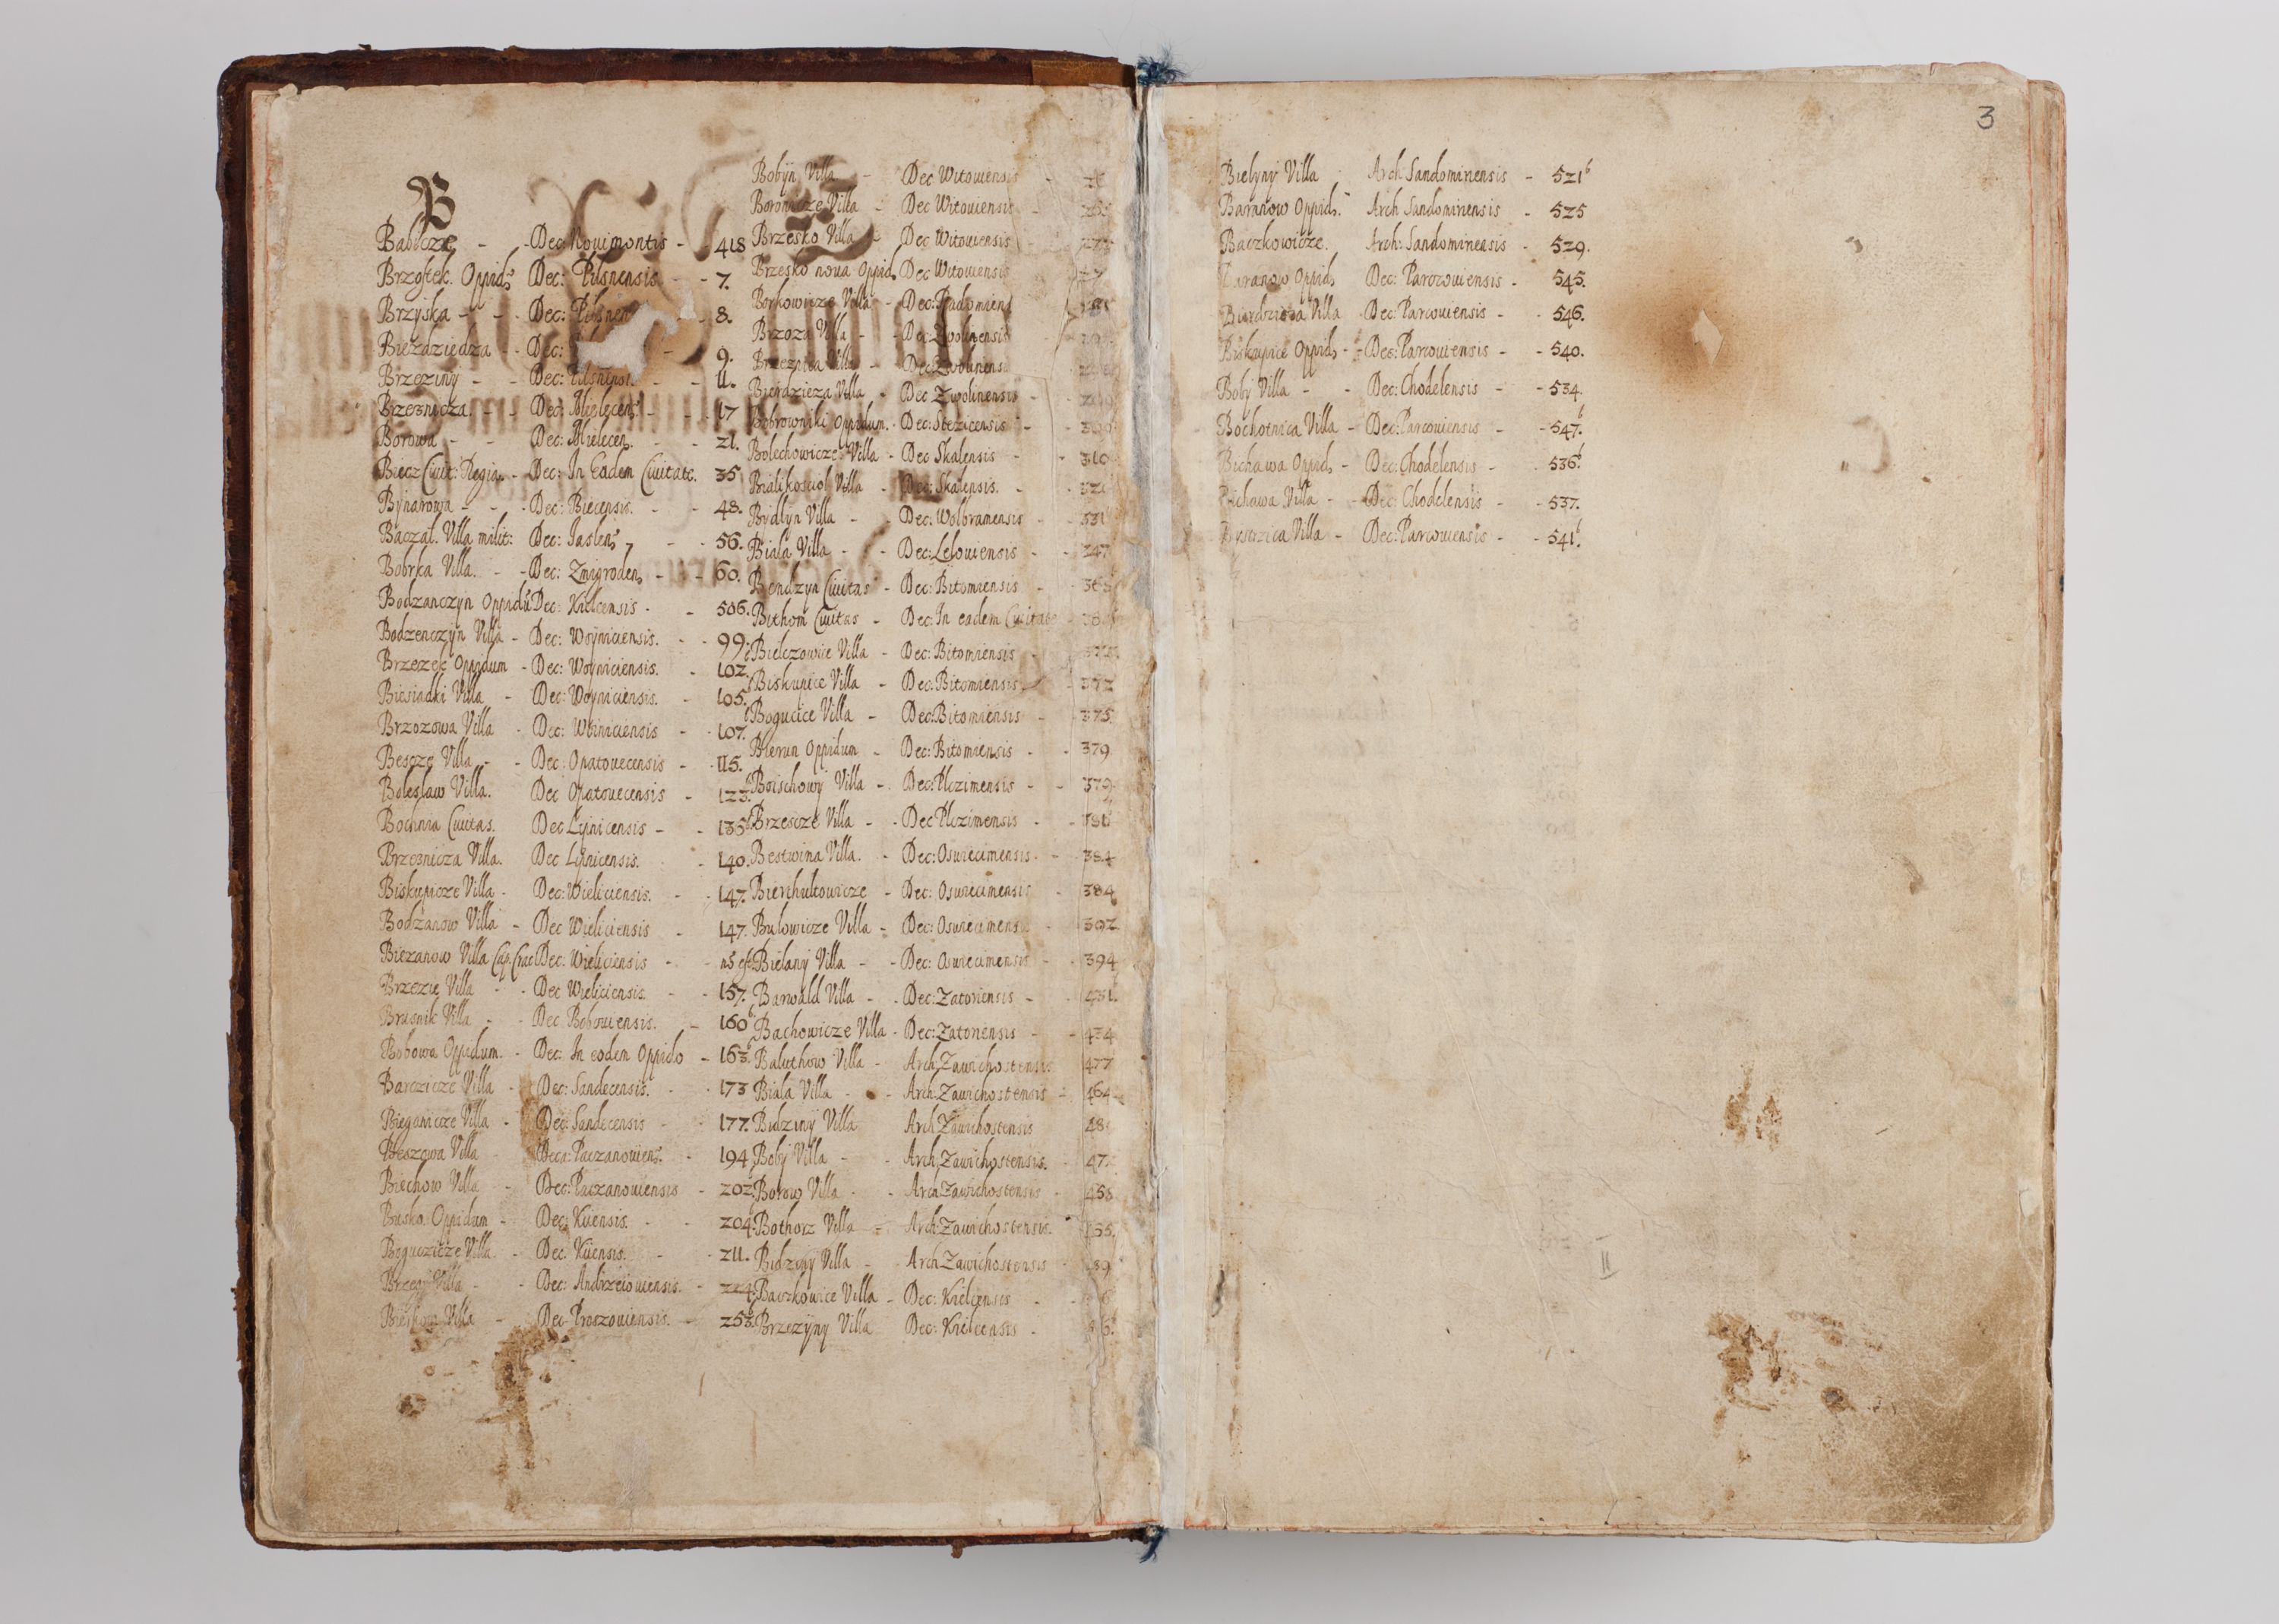 B
Babicze - - Dec: Novimontis - - 418
Brzostek. Oppid. Dec: Pilsnensis - - 7.
Brzyska - - Dec: Pilsnen 8.
Biezdziedza - - Dec: - 9.
Brzeziny - - Dec: - - 11.
Brzeznicza. - - Dec: Mielecens - - 17
Borowa - - Dec: Mielecen. - - 21.
Biecz Civit: Regia. - Dec: In Eadem Civitate. 35
Bÿnarowa - - Dec: Biecensis. - - 48.
Baczal. Villa milit: Dec: Iaslens - 56.
Bobrka Villa. - - Dec: Zmigroden - - 60.
Bodzanczyn Oppidũ Dec: Kielcensis - - 506.
Bodzenczÿn Villa - Dec: Woyniciensis. - - 99.
Brzezec Oppidum - Dec: Woyniciensis. - 102.
Biesiadki Villa - Dec: Woyniciensis. - 105.
Brzozowa Villa - Dec: Woiniciensis - - 107.
Bescze Villa - - Dec: Opatovecensis - - 115.
Boleslaw Villa. Dec Opatovecensis - 123.
Bochnia Civitas. Dec Lipnicensis - - 135
Brzeznicza Villa. Dec Lipnicensis. - 140.
Biskupicze Villa - Dec: Wieliciensis. - - 147.
Bodzanow Villa - Dec Wieliciensis - 147.
Biezanow Villa Cap. Crac Dec: Wieliciensis - -
Brzezie Villa - - Dec Wieliciensis - - 157.
Brusnik Villa - - Dec Boboviensis. - 160b
Bobowa Oppidum. - Dec: In eodem Oppido - 163.
Barczicze Villa - Dec: Sandecensis. - - 173
Bieganicze Villa - Dec: Sandecensis - - 177.
Beszowa Villa - Deca: Paczanoviens. - 194
Biechow Villa - Dec: Paczanoviensis - 202.
Busko Oppidum - Dec: Kiiensis. - - 204.
Boguczicze Villa - Dec. Kiiensis. - - 211.
Brzegi Villa - - Dec: Andrzeioviensis. - 224.
Villa - Dec Proszoviensis. - 253.
Bobÿn Villa - Dec Witoviensis -
Villa - Dec Witoviensis -
Brzesko Villa Dec Witoviensis
Brzesko nova Oppid. Dec Witoviensis
Borkowicze Villa - Dec: Radomiens
Brzoza Villa - - Dec: Zvolinensis
Brzeznica Villa - Dec: Zwolinensi
Bierdzieza Villa - Dec Zwolinensis -
Bobrowniki Oppidum. - Dec: Stezicensis -
Bolechowicze Villa - Dec Skalensis - - 310
Bialikosciol Villa - Dec: Skalensis. -
Bÿdlyn Villa - - Dec: Wolbramensis - - 331
Biala Villa - - Dec: Leloviensis - - 247
Bendzyn Civitas - Dec: Bitomiensis -
Bithom Civitas - Dec: In eadem Civitate -
Bielczowice Villa - Dec: Bitomiensis -
Biskupice Villa - Dec: Bitomiensis - 372
Bogucice Villa - Dec: Bitomiensis - - 375
Bierun Oppidum - Dec: Bitomiensis - - 379
Boischowÿ Villa - Dec: Plczimensis - - 379
Brzescze Villa - - Dec Plczimensis - -
Bestwina Villa. - Dec: Osviecimensis - - 384
Bierthultowicze - Dec: Osviecimensis - 384
Bulowicze Villa - Dec: Osviecimens - 392
Bielany Villa - - Dec: Osviecimensis - - 394
Barwald Villa - - Dec: Zatoriensis - - 431
Bachowicze Villa - Dec: Zatoriensis - - 434
Baluthow Villa - Arch. Zawichostensis 477
Biala Villa - - Arch. Zawichostensis - 464
Bidzinÿ Villa Arch Zawichostensis 48
Bobÿ Villa - - Arch Zawichostensis. - 47
Borow Villa - - Arch Zawichostensis - 458
Bothorz Villa - Arch: Zawichostensis.
Bidzinÿ Villa - Arch Zawichostensis
Baczkowice Villa - Dec: Kielcensis -
Brzezÿny Villa Dec: Kielcensis -
3
Bielynÿ Villa Arch Sandomiriensis - 521b
Baranow Oppid. Arch Sandomiriensis - 525
Baczkowicze. Arch: Sandomiriensis - 529.
Baranow Oppid. Dec: Parczoviensis - 545.
Villa - Dec: Parcoviensis - - 546.
Biskupice Oppid. - - Dec: Parcoviensis - - 540.
Bobÿ Villa - - Dec: Chodelensis - - 534.
Bochotnica Villa - Dec: Parcoviensis - - 547.b
Bichawa Oppid. - Dec: Chodelensis - - 536.b
Bichawa Villa - - Dec: Chodelensis - - 537.
Villa - Dec: Parcoviensis - - 541.b